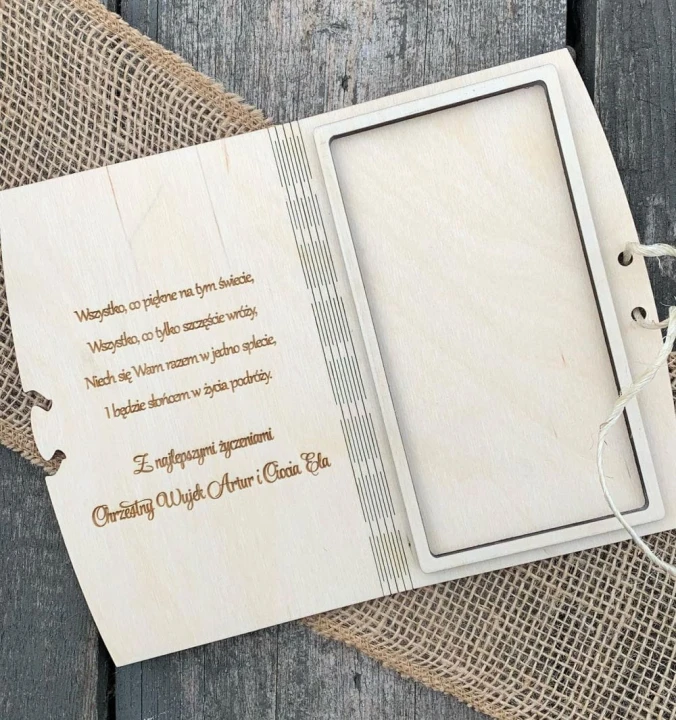 Wszystko, co piękne na tym świecie,
Wszystko, co tylko szczęście wróży,
Niech się Wam razem w jedno splecie,
I będzie słońcem w życia podróży.
Z najlepszymi życzeniami
Chrzestny Wujek Artur i Ciocia Ela